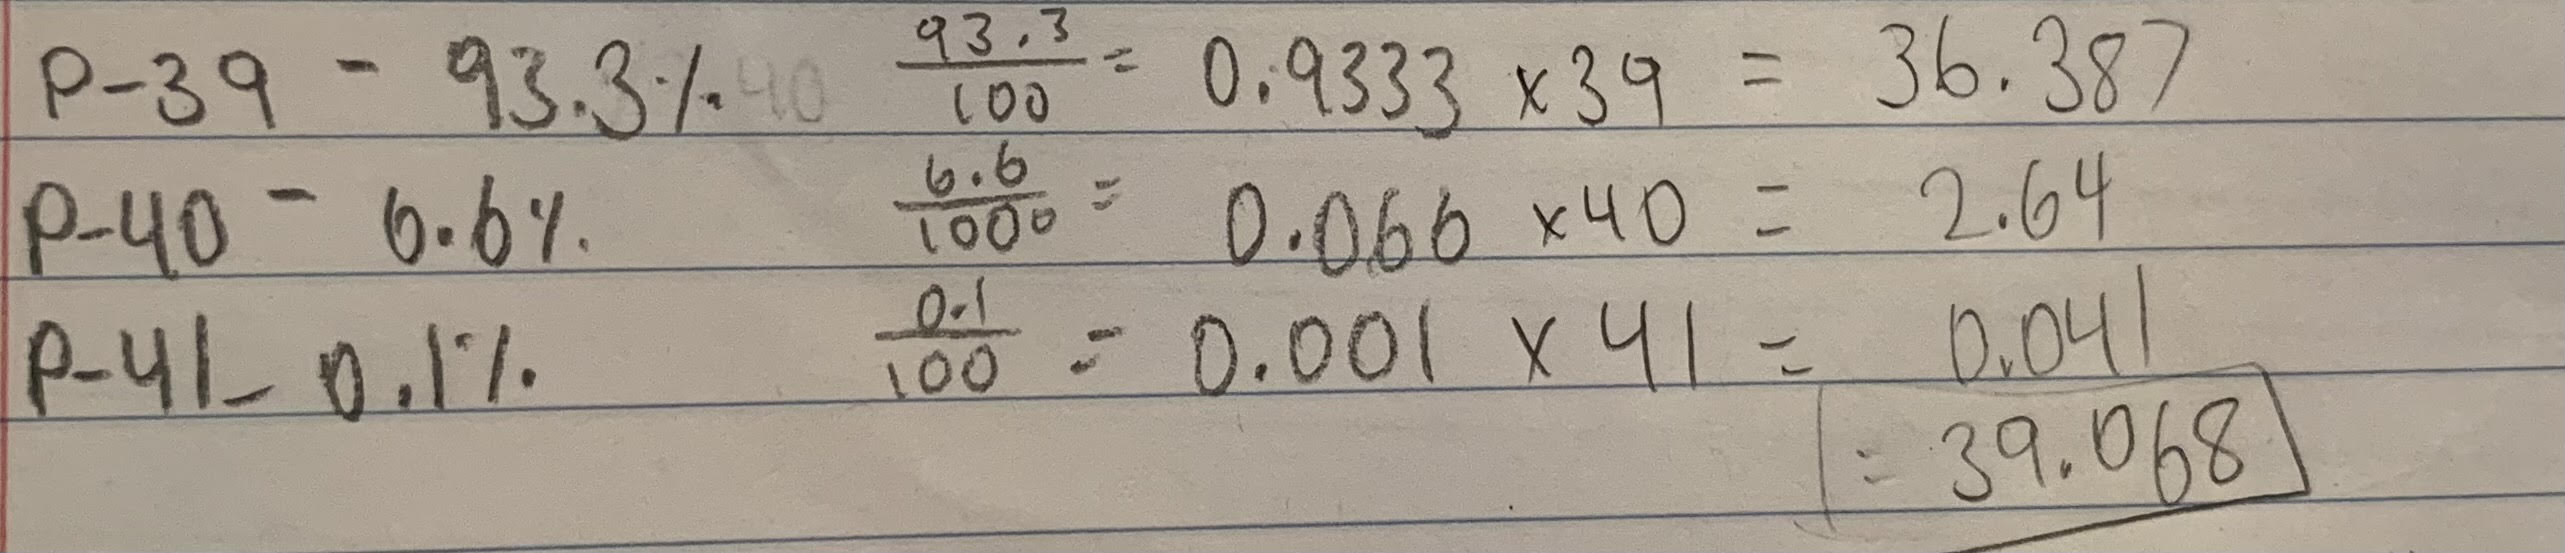 P-39 - 93.3% 40 93.3/100 = 0.9333 x 39 = 36.387
P-40 - 6.6% 6.6/1000 = 0.066 x 40 = 2.64
P-41 - 0.1% 0.1/100 = 0.001 x 41 = 0.041
= 39.068